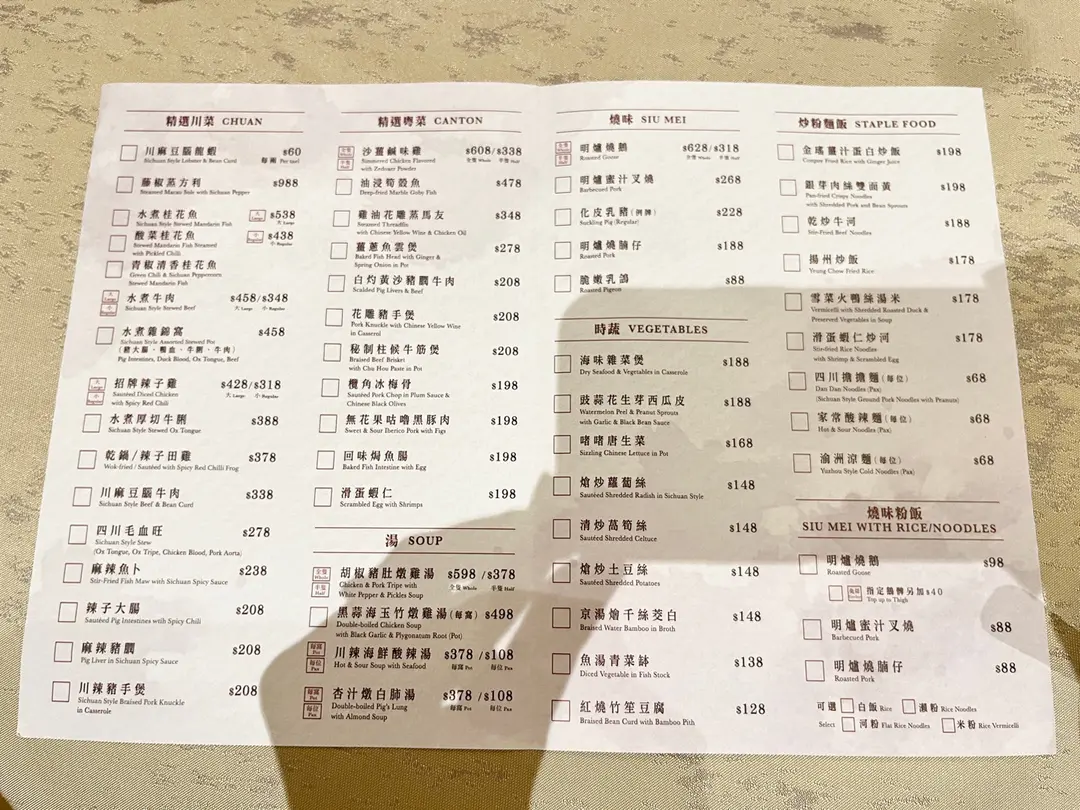 精選川菜 CHUAN
川麻豆腐龍蝦 $60
Sichuan Style Lobster & Bean Curd 每兩 Per tael
藤椒蒸方利 $988
Steamed Macau Sole with Sichuan Pepper
水煮桂花魚 大 Large $538
Sichuan Style Stewed Mandarin Fish 大 Large
酸菜桂花魚 小 Regular $438
Stewed Mandarin Fish Steamed 小 Regular
with Pickled Chili
青椒清香桂花魚
Green Chili & Sichuan Peppercorn
Stewed Mandarin Fish
大 Large 小
水煮牛肉 $458/$348
Sichuan Style Stewed Beef 大 Large 小 Regular
水煮雜錦窩 $458
Sichuan Style Assorted Stewed Pot
(豬大腸、鴨血、牛脷、牛肉)
Pig Intestines, Duck Blood, Ox Tongue, Beef
大 Large 小 Regular
招牌辣子雞 $428/$318
Sautéed Diced Chicken 大 Large 小 Regular
with Spicy Red Chili
水煮厚切牛脷 $388
Sichuan Style Stewed Ox Tongue
乾鍋/辣子田雞 $378
Wok-fried / Sautéed with Spicy Red Chilli Frog
川麻豆腐牛肉 $338
Sichuan Style Beef & Bean Curd
四川毛血旺 $278
Sichuan Style Stew
(Ox Tongue, Ox Tripe, Chicken Blood, Pork Aorta)
麻辣魚卜 $238
Stir-Fried Fish Maw with Sichuan Spicy Sauce
辣子大腸 $208
Sautéed Pig Intestines with Spicy Chili
麻辣豬膶 $208
Pig Liver in Sichuan Spicy Sauce
川辣豬手煲 $208
Sichuan Style Braised Pork Knuckle
in Casserole
精選粵菜 CANTON
全隻 Whole 半隻 Half
沙薑鹹味雞 $608/$338
Simmered Chicken Flavored 全隻 Whole 半隻 Half
with Zedoary Powder
油浸筍殼魚 $478
Deep-fried Marble Goby Fish
雞油花雕蒸馬友 $348
Steamed Threadfin
with Chinese Yellow Wine & Chicken Oil
薑蔥魚雲煲 $278
Baked Fish Head with Ginger &
Spring Onion in Pot
白灼黃沙豬膶牛肉 $208
Scalded Pig Livers & Beef
花雕豬手煲 $208
Pork Knuckle with Chinese Yellow Wine
in Casserol
秘制柱候牛筋煲 $208
Braised Beef Brisket
with Chu Hou Paste in Pot
欖角冰梅骨 $198
Sautéed Pork Chop in Plum Sauce &
Chinese Black Olives
無花果咕嚕黑豚肉 $198
Sweet & Sour Iberico Pork with Figs
回味焗魚腸 $198
Baked Fish Intestine with Egg
滑蛋蝦仁 $198
Scrambled Egg with Shrimps
湯 SOUP
全隻 Whole 半隻 Half
胡椒豬肚燉雞湯 $598 /$378
Chicken & Pork Tripe with 全隻 Whole 半隻 Half
White Pepper & Pickles Soup
黑蒜海玉竹燉雞湯(每窩) $498
Double-boiled Chicken Soup
with Black Garlic & Plygonatum Root (Pot)
每窩 Pot 每位 Pax
川辣海鮮酸辣湯 $378 /$108
Hot & Sour Soup with Seafood 每窩 Pot 每位 Pax
每窩 Pot 每位 Pax
杏汁燉白肺湯 $378 /$108
Double-boiled Pig's Lung 每窩 Pot 每位 Pax
with Almond Soup
燒味 SIU MEI
全隻 Whole 半隻 Half
明爐燒鵝 $628/$318
Roasted Goose 全隻 Whole 半隻 Half
明爐蜜汁叉燒 $268
Barbecued Pork
化皮乳豬(例牌) $228
Suckling Pig (Regular)
明爐燒腩仔 $188
Roasted Pork
脆嫩乳鴿 $88
Roasted Pigeon
時蔬 VEGETABLES
海味雜菜煲 $188
Dry Seafood & Vegetables in Casserole
豉蒜花生芽西瓜皮 $188
Watermelon Peel & Peanut Sprouts
with Garlic & Black Bean Sauce
啫啫唐生菜 $168
Sizzling Chinese Lettuce in Pot
熗炒蘿蔔絲 $148
Sautéed Shredded Radish in Sichuan Style
清炒萵筍絲 $148
Sautéed Shredded Celtuce
熗炒土豆絲 $148
Sautéed Shredded Potatoes
京湯燴千絲茭白 $148
Braised Water Bamboo in Broth
魚湯青菜缽 $138
Diced Vegetable in Fish Stock
紅燒竹笙豆腐 $128
Braised Bean Curd with Bamboo Pith
炒粉麵飯 STAPLE FOOD
金瑤薑汁蛋白炒飯 $198
Conpoy Fried Rice with Ginger Juice
銀芽肉絲雙面黃 $198
Pan-fried Crispy Noodles
with Shredded Pork and Bean Sprouts
乾炒牛河 $188
Stir-Fried Beef Noodles
揚州炒飯 $178
Yeung Chow Fried Rice
雪菜火鴨絲湯米 $178
Vermicelli with Shredded Roasted Duck &
Preserved Vegetables in Soup
滑蛋蝦仁炒河 $178
Stir-fried Rice Noodles
with Shrimp & Scrambled Egg
四川擔擔麵(每位) $68
Dan Dan Noodles (Pax)
(Sichuan Style Ground Pork Noodles with Peanuts)
家常酸辣麵(每位) $68
Hot & Sour Noodles (Pax)
渝洲涼麵(每位) $68
Yuzhou Style Cold Noodles (Pax)
燒味粉飯
SIU MEI WITH RICE/NOODLES
明爐燒鵝 $98
Roasted Goose
指定鵝髀另加$40
Top up to Thigh
明爐蜜汁叉燒 $88
Barbecued Pork
明爐燒腩仔 $88
Roasted Pork
可選 白飯 Rice 瀨粉 Rice Noodles
Select 河粉 Flat Rice Noodles 米粉 Rice Vermicelli